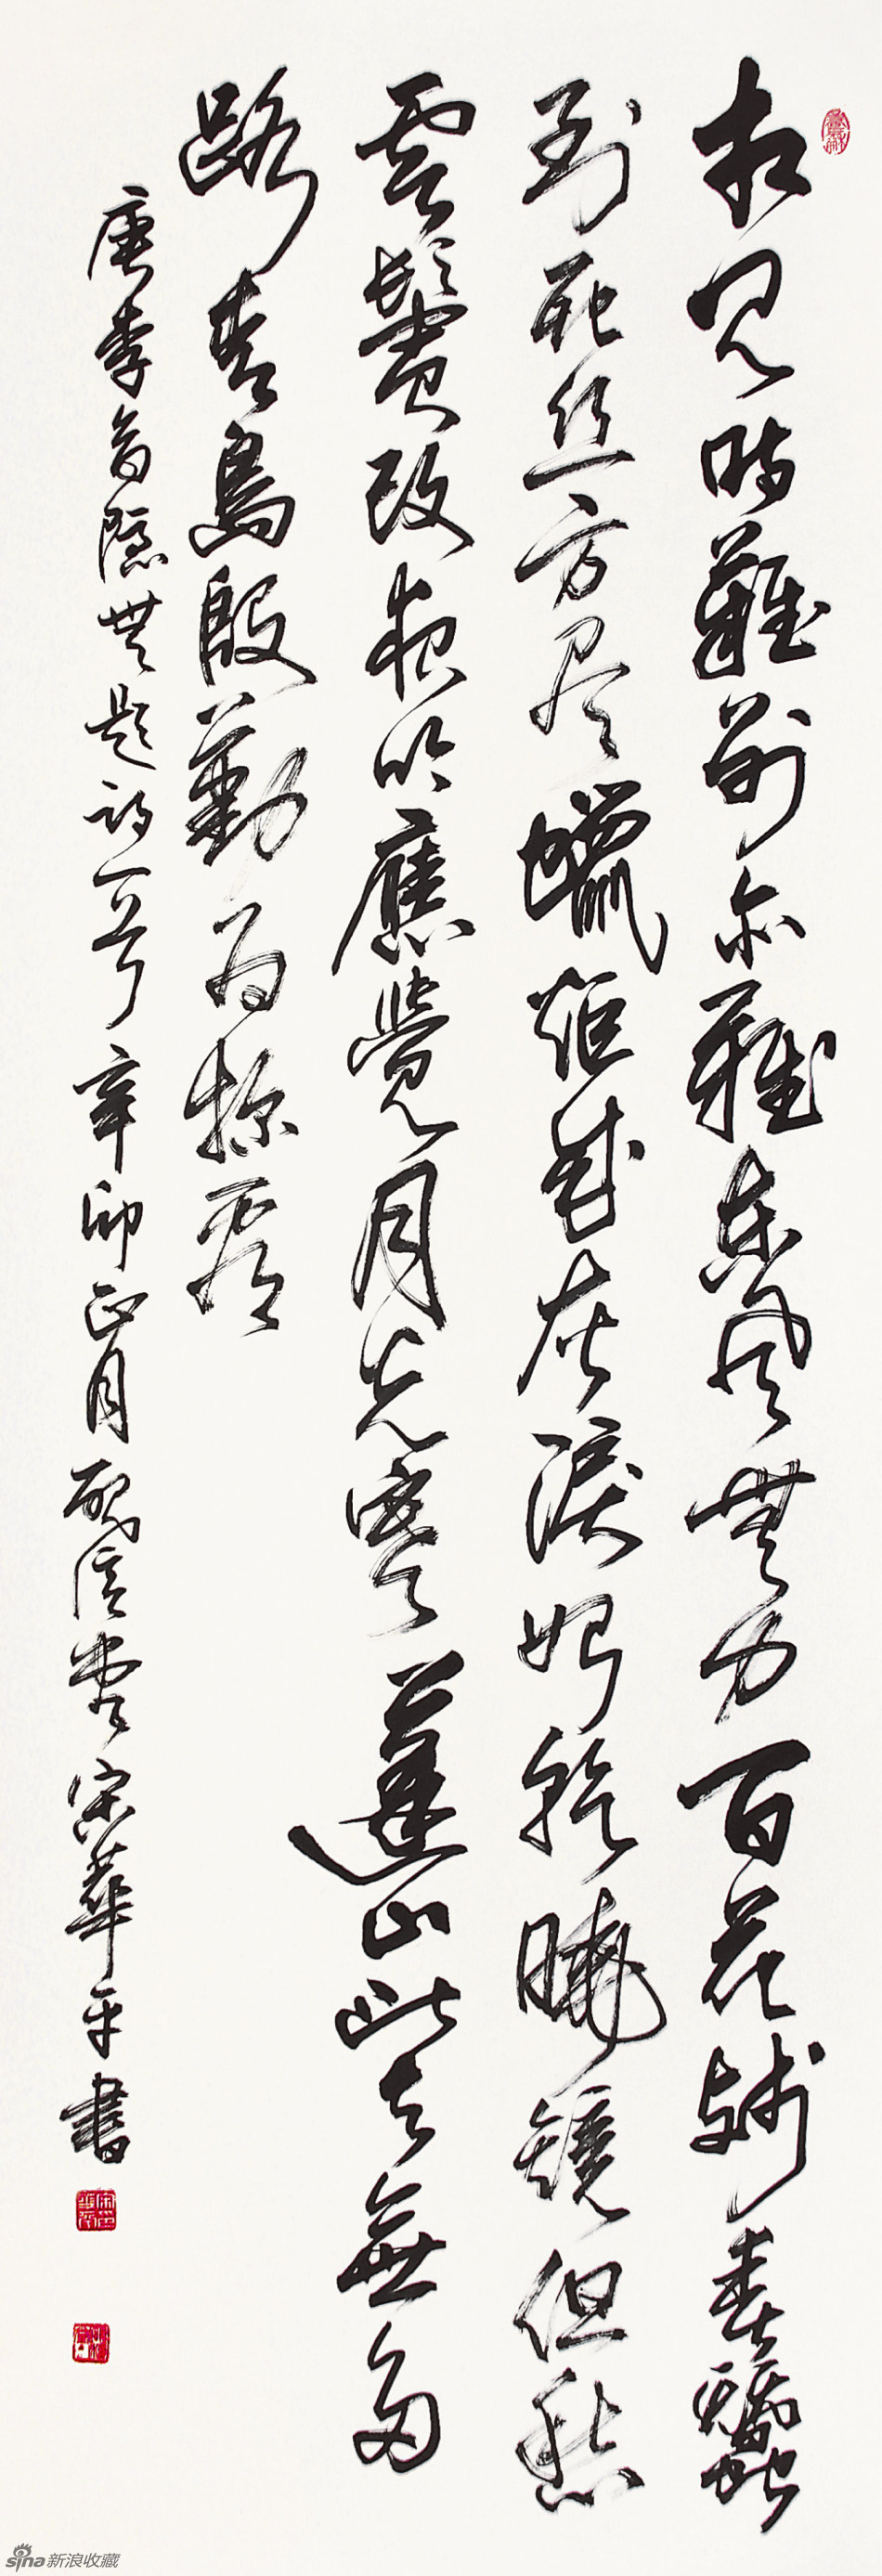 相見時難別亦難東風無力百花殘春蠶
到死丝方尽蠟炬成灰淚始乾曉鏡但愁
雲鬢改夜吟應覺月光寒蓬山此去無多
路青鳥殷勤為探看
唐李商隱無題詩一首辛卯正月信堂宋華平書
sina新浪收藏